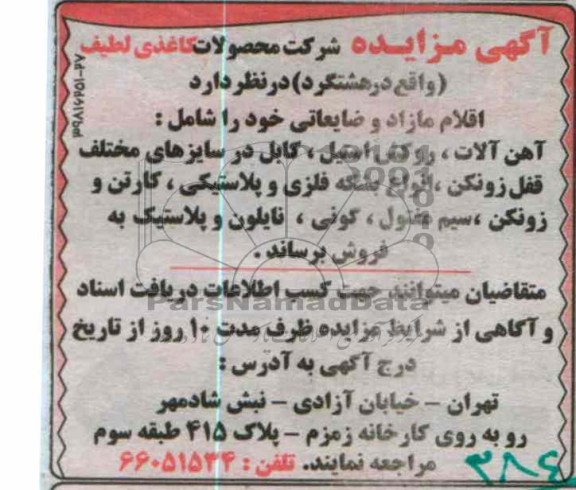 آگهی مزایده شرکت محصولات کاغذی لطیف
(واقع درهشتگرد) در نظر دارد
اقلام مازاد و ضایعاتی خود را شامل :
آهن آلات ، روکش استیل ، کابل در سایزهای مختلف
قفل زونکن ، انواع بشکه فلزی و پلاستیکی ، کارتن و
زونکن ، سیم مفتول ، گونی ، نایلون و پلاستیک به
فروش برساند .
متقاضیان میتوانند جهت کسب اطلاعات دریافت اسناد
و آگاهی از شرایط مزایده ظرف مدت ۱۰ روز از تاریخ
درج آگهی به آدرس :
تهران – خیابان آزادی – نبش شادمهر
رو به روی کارخانه زمزم – پلاک ۴۱۵ طبقه سوم
مراجعه نمایند. تلفن : ۶۶۰۵۱۵۳۴
ParsNamadData